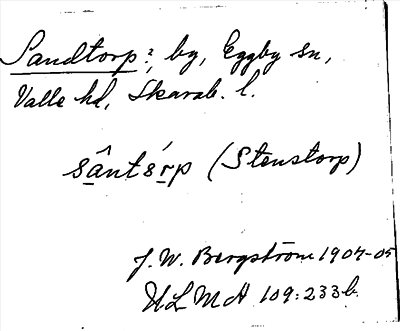 Sandtorp?, by, Eggby sn,
Valle hd, Skarab. l.
sâ̱ntśṟp (Stenstorp)
J. W. Bergström 1904-05
ULMA 109:233b.